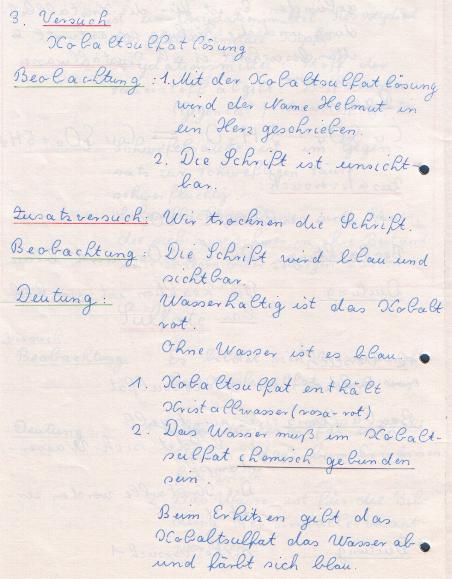 3. Versuch
Kobaltsulfatlösung
Beobachtung: 1. Mit der Kobaltsulfatlösung
wird der Name Helmut in
ein Herz geschrieben.
2. Die Schrift ist unsicht-
bar.
Zusatzversuch: Wir trocknen die Schrift.
Beobachtung: Die Schrift wird blau und
sichtbar.
Deutung: Wasserhaltig ist das Kobalt
rot.
Ohne Wasser ist es blau.
1. Kobaltsulfat enthält
Kristallwasser (rosa-rot)
2. Das Wasser muß im Kobalt-
sulfat chemisch gebunden
sein.
Beim Erhitzen gibt das
Kobaltsulfat das Wasser ab
und färbt sich blau.